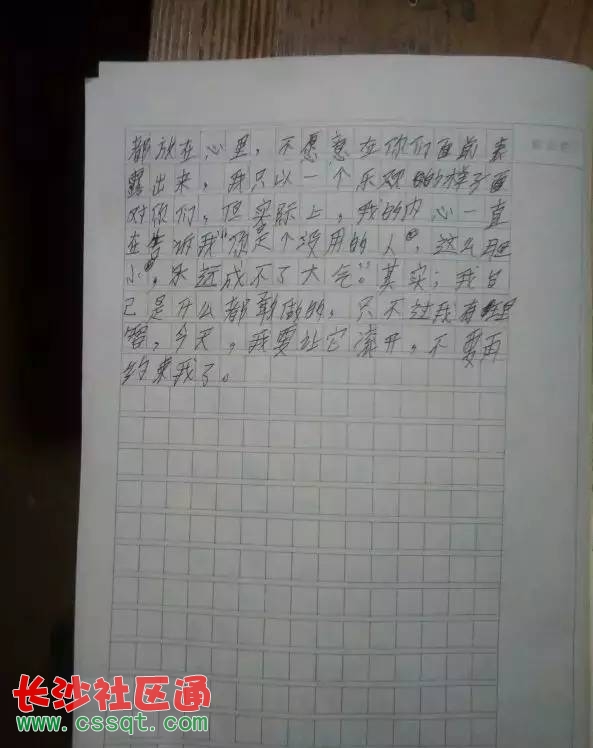 都放在心里，不愿意在你们面前表
露出来，我只以一个乐观的样子面
对你们，但实际上，我的内心一直
在告诉我“你是个没用的人，这么胆
小，永远成不了大气。”其实；我自
己是什么都敢做的，只不过我有
，今天，我要让它滚开，不要再
约束我了。
长沙社区通
www.cssqt.com